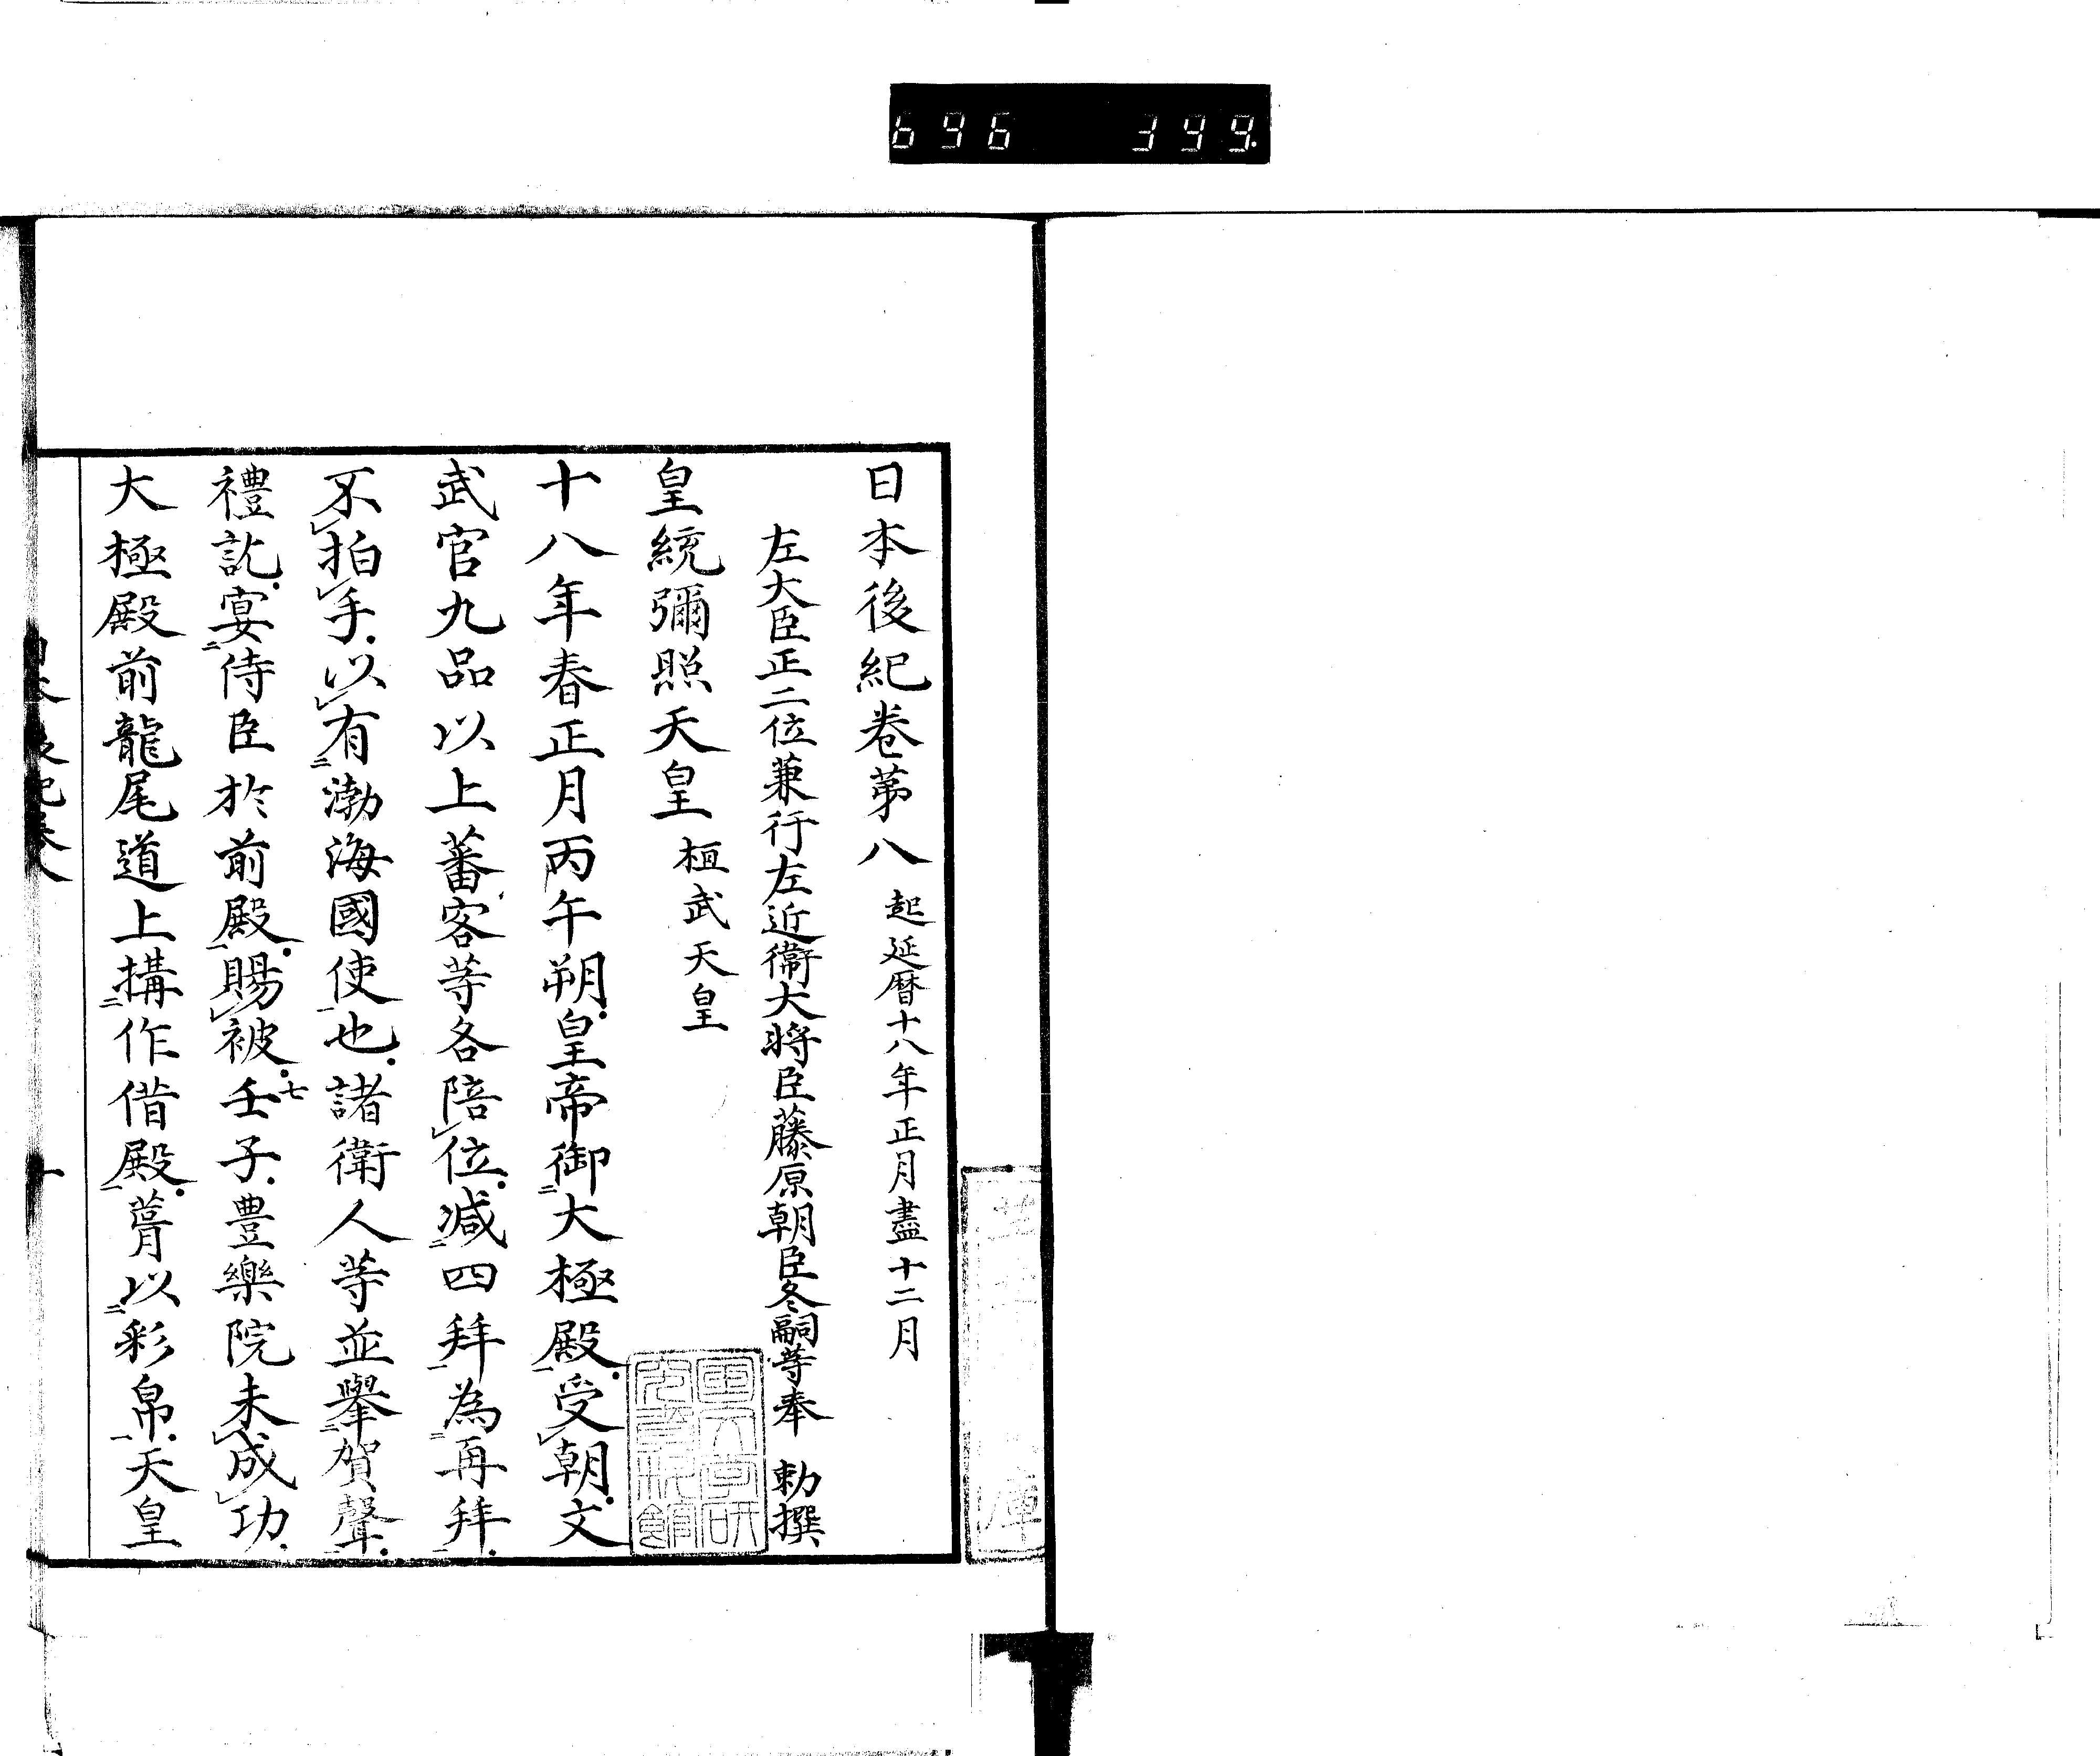 696 399.
日本後紀卷苐八 起延暦十八年正月盡十二月
左大臣正二位兼行左近衞大將臣藤原朝臣冬嗣等奉 勅撰
皇統彌照天皇 桓武天皇
十八年春正月丙午朔皇帝御二大極殿一受レ朝文
武官九品以上蕃客等各陪レ位减二四拜一為二再拜一
不レ拍レ手以レ有二渤海國使一也諸衛人等並舉二賀聲一
禮訖宴二侍臣於前殿一賜レ被七壬子豊樂院未レ成レ功
大極殿前龍尾道上搆二作借殿一葺以二彩帛一天皇